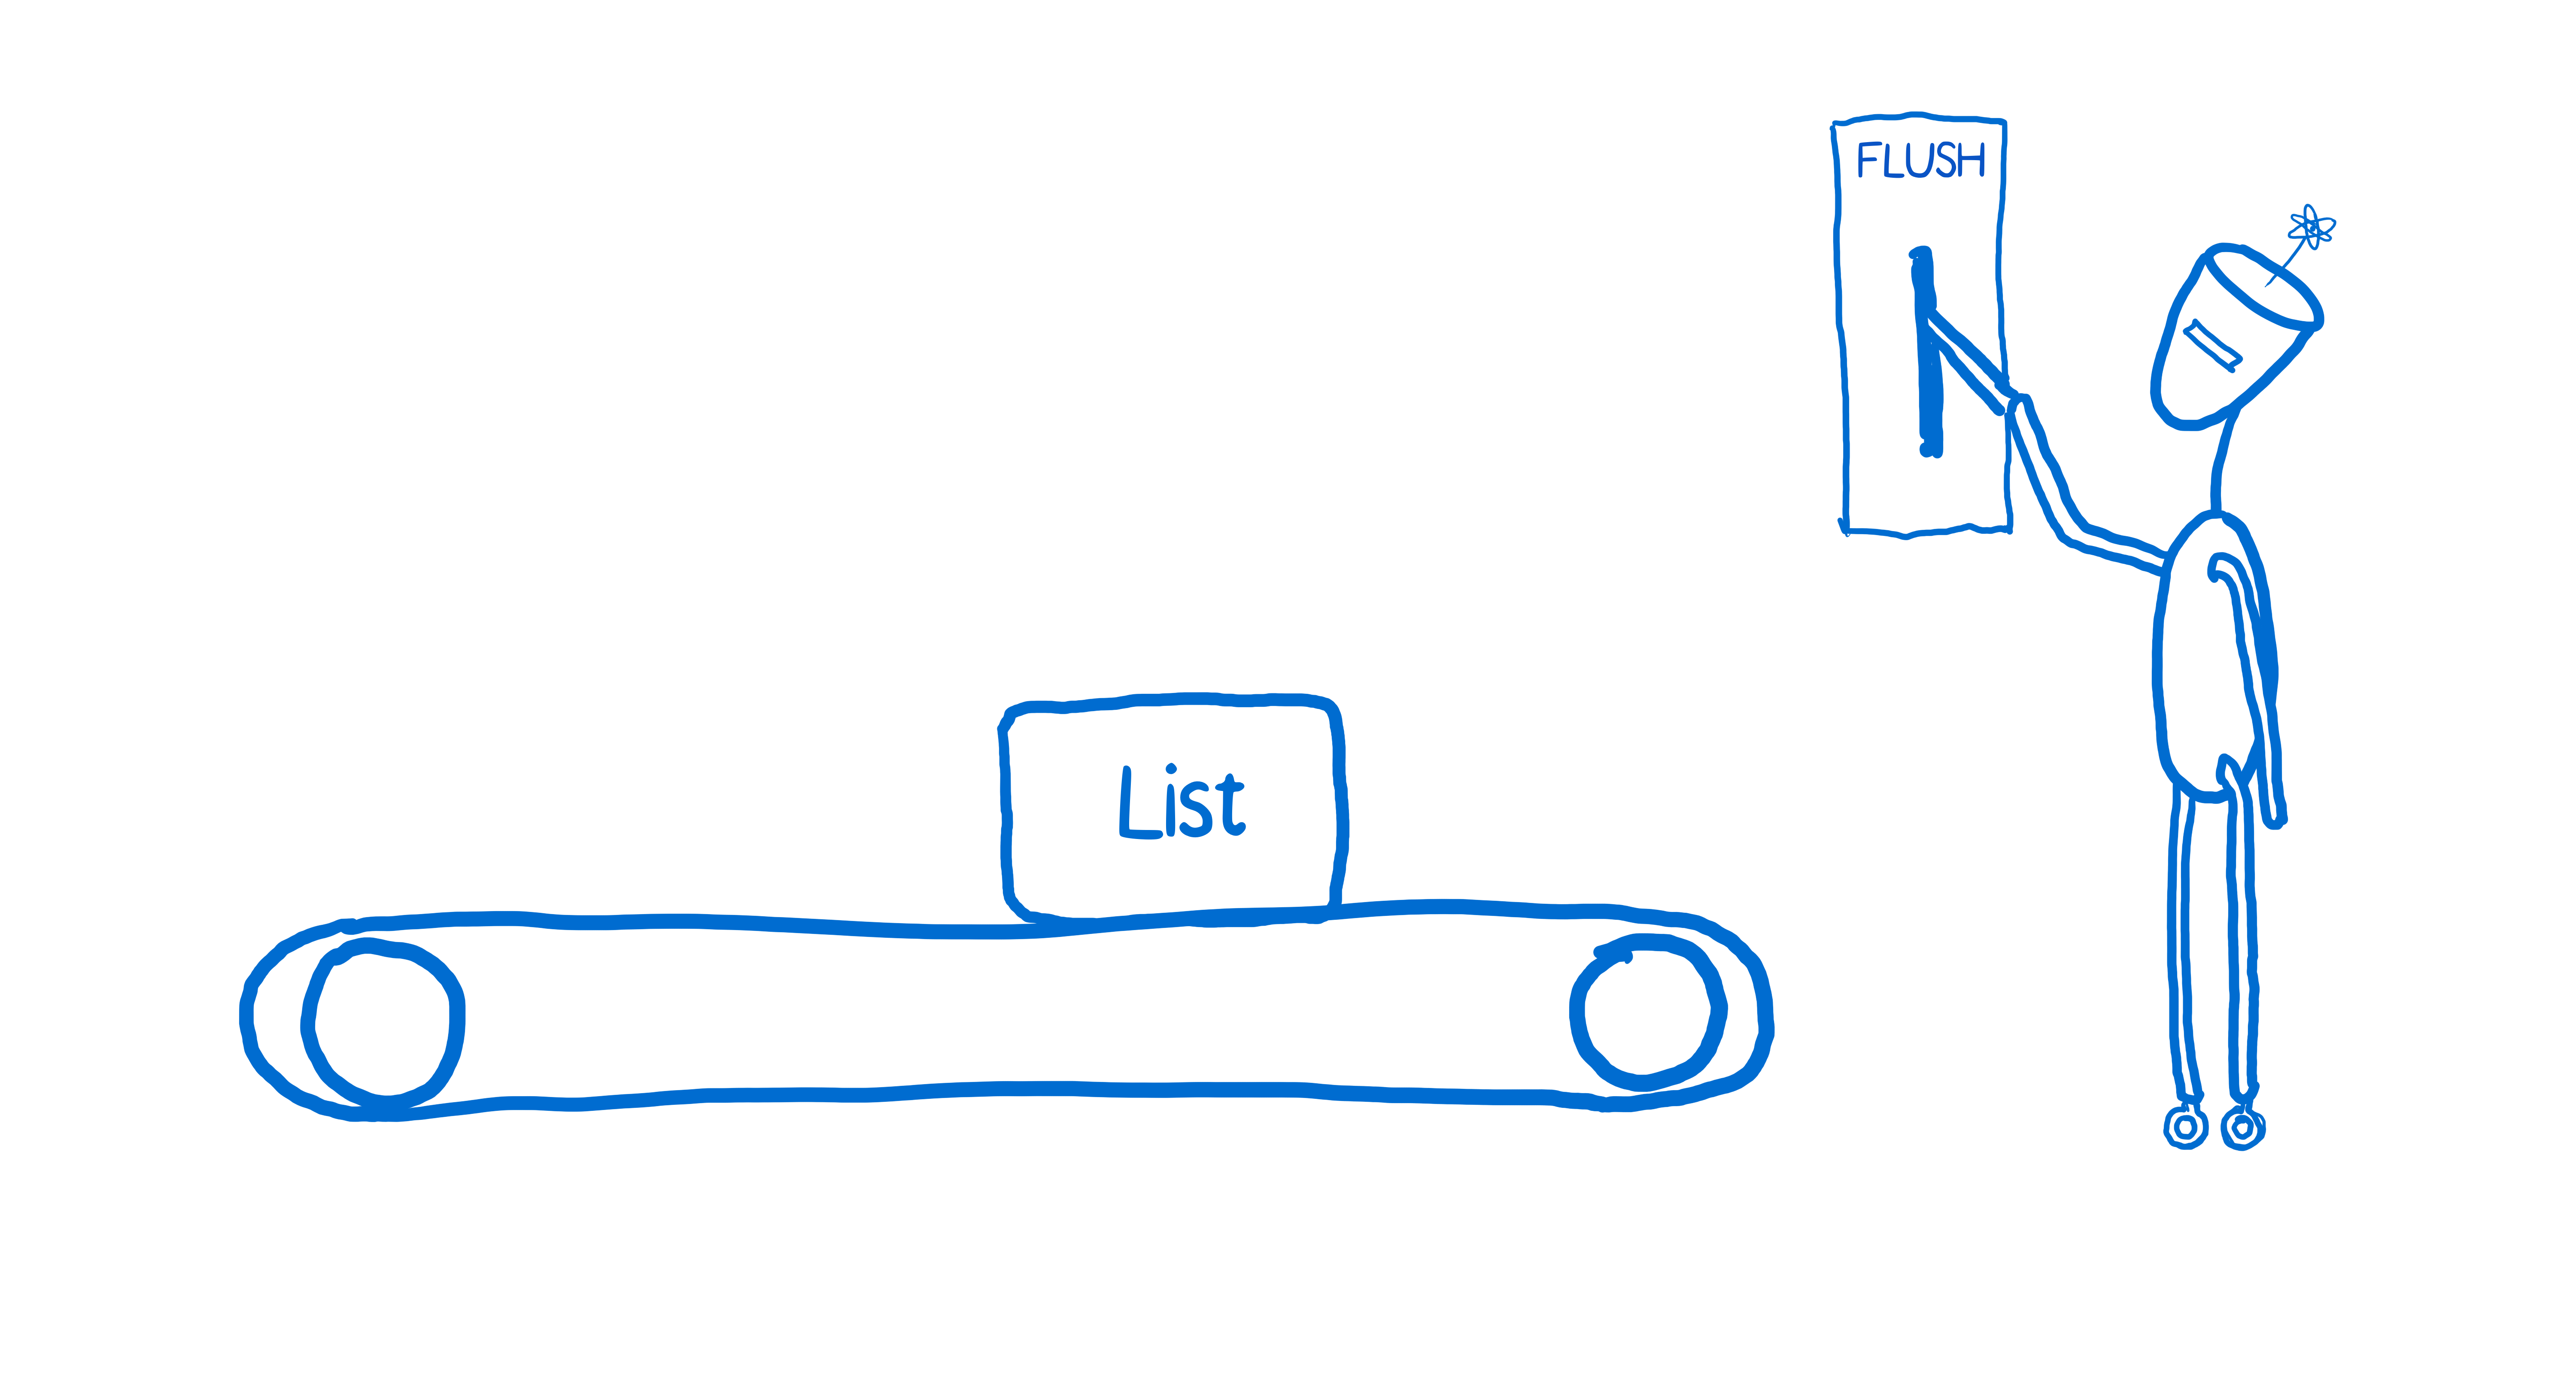 FLUSH
List